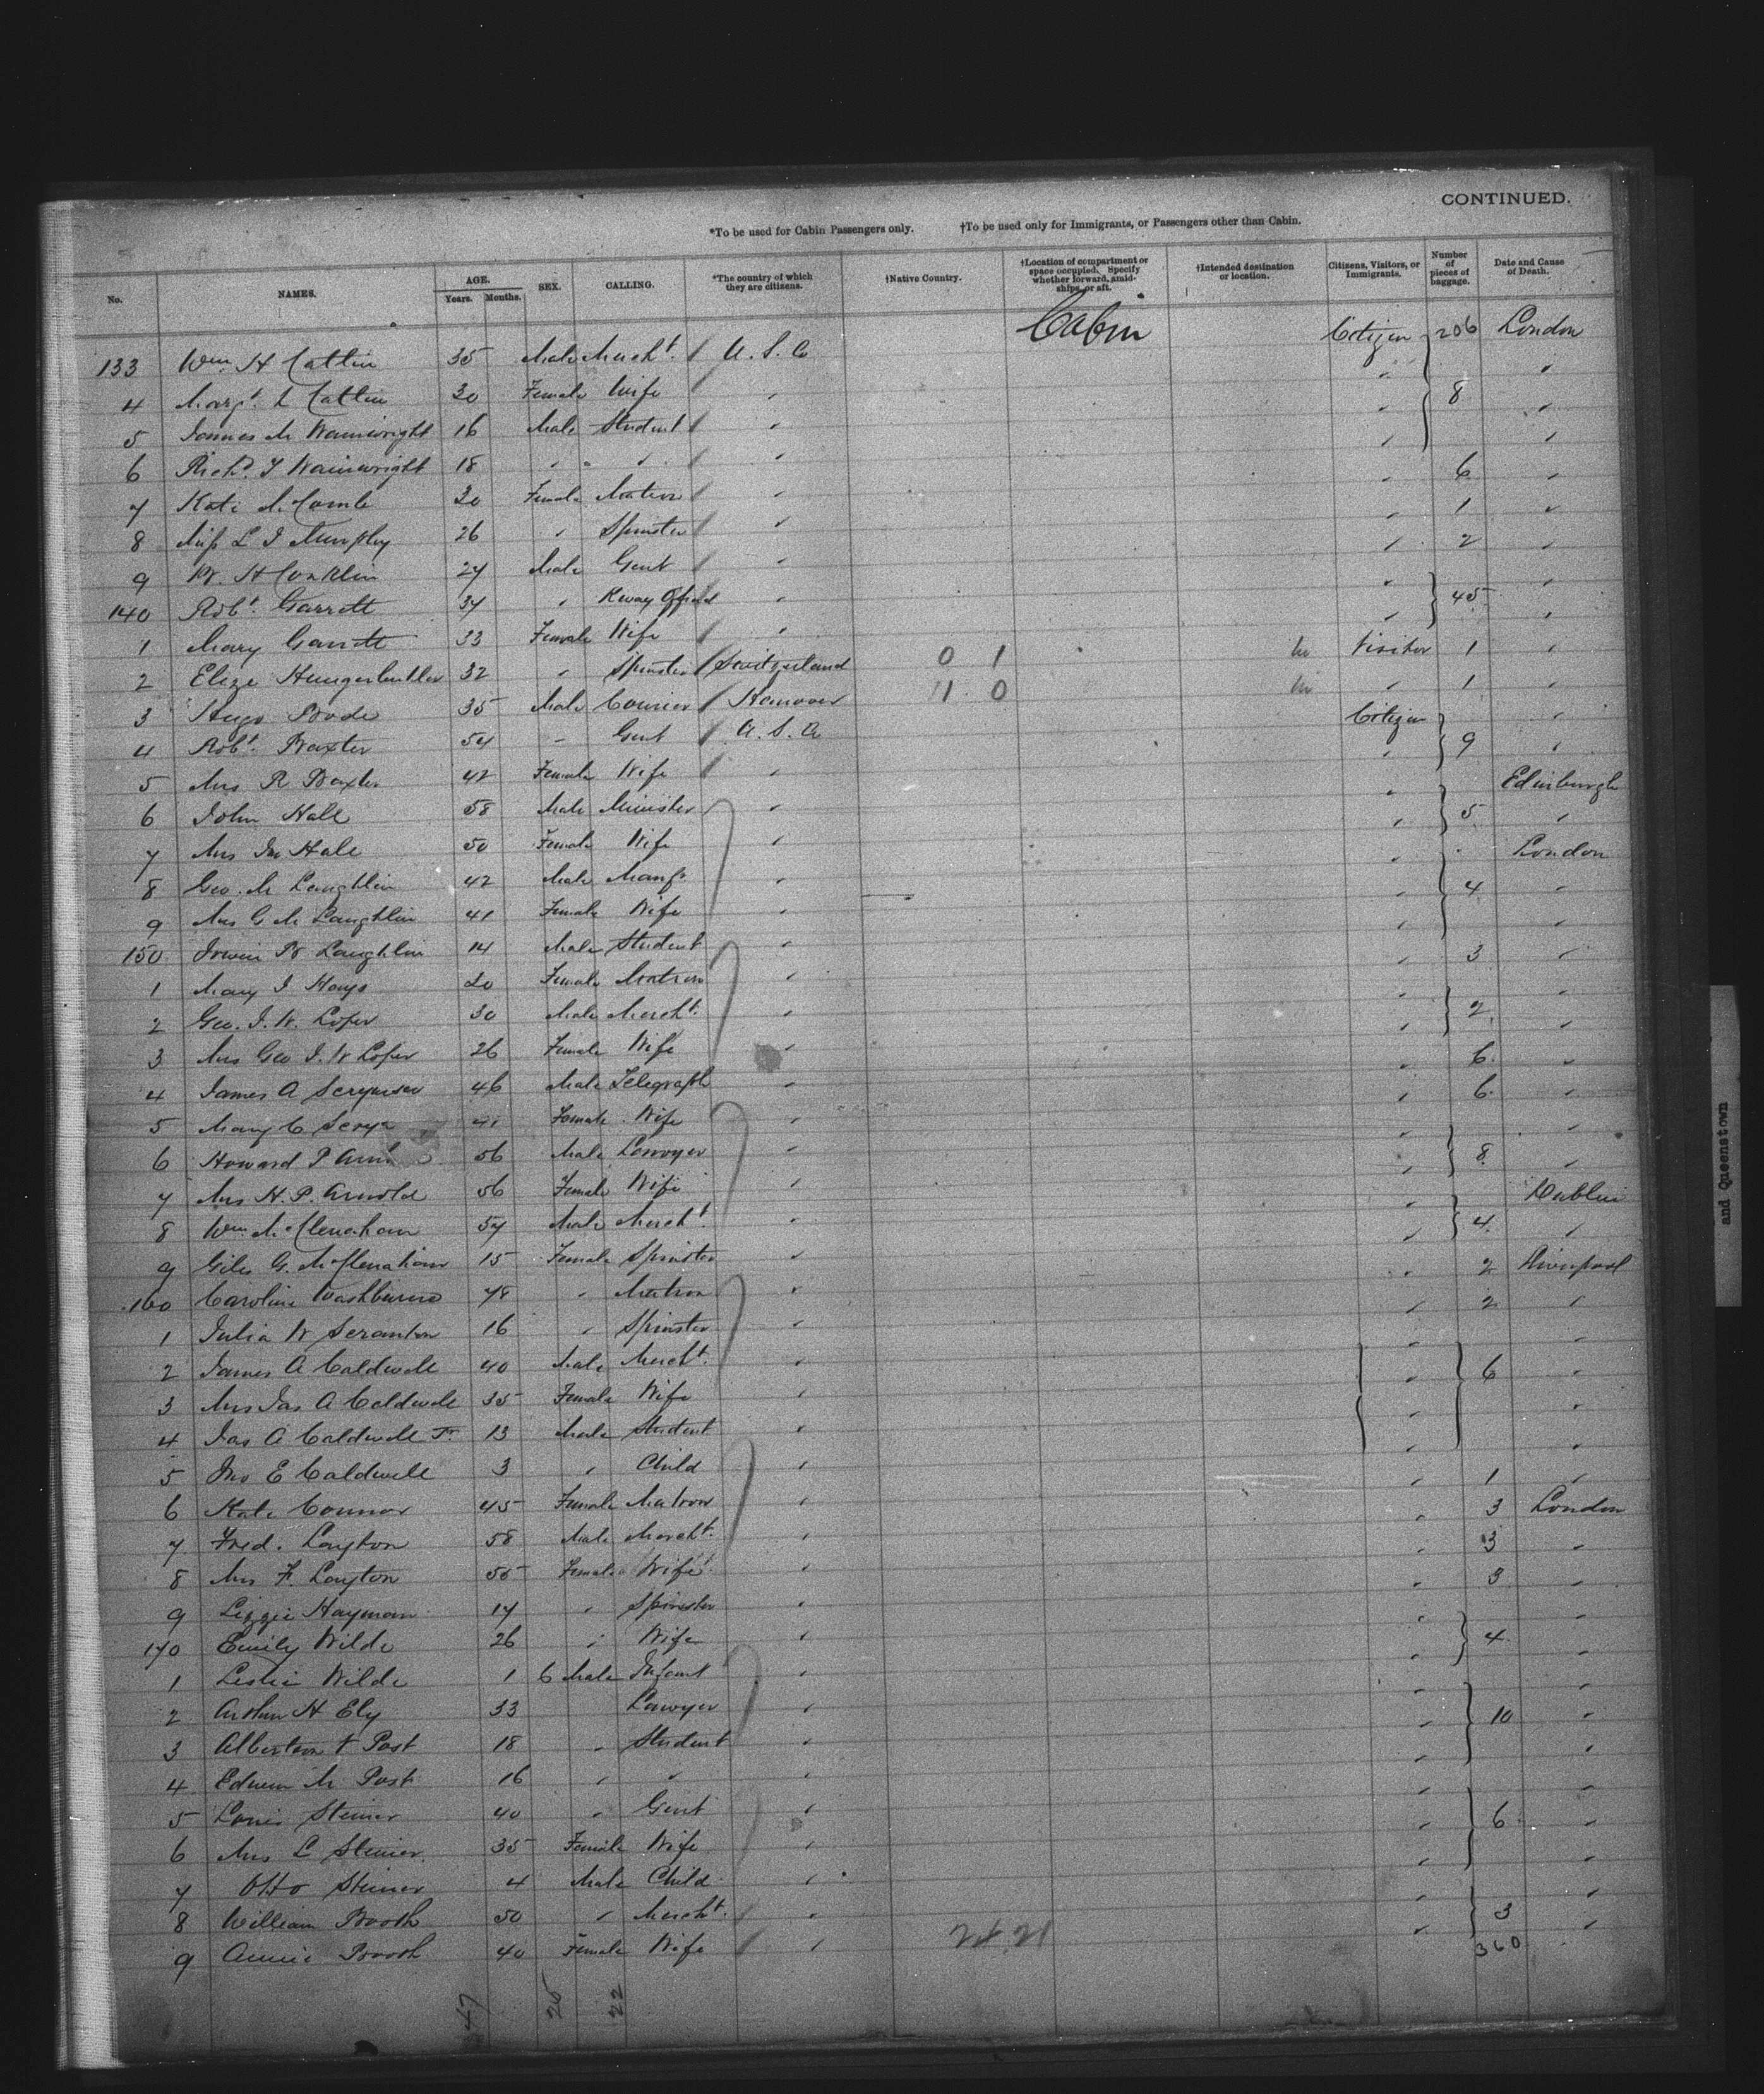 CONTINUED.
*To be used for Cabin Passengers only. †To be used only for Immigrants, or Passengers other than Cabin.
No. NAMES. AGE. Years. Months. SEX. CALLING. *The country of which they are citizens. †Native Country. †Location of compartment or space occupied. Specify whether forward, amidships, or aft. †Intended destination or location. Citizens, Visitors, or Immigrants. Number of pieces of baggage. Date and Cause of Death.
Cabin Citizen 206 London
133 Wm. H Catlin 35 Male Mercht. U. S. A
4 Margt. L Catlin 30 Female Wife " 8
5 James M Wainwright 16 Male Student "
6 Richd. T Wainwright 18 " " " 6
7 Kate McComb 30 Female Matron " 1
8 Miss L J Murphy 26 " Spinster " 2
9 W. H Conklin 27 Male Gent "
140 Robt. Garrett 37 " Rway Official " 45
1 Mary Garrett 33 Female Wife " Visitor 1
2 Elize Hungerbuhler 32 " Spinster Switzerland 0 1 " 1
3 Hugo Bode 35 Male Courier Hanover 11 0 Citizen
4 Robt. Baxter 54 – Gent U. S. A 9
5 Mrs R Baxter 42 Female Wife " Edinburgh
6 John Hall 58 Male Minister " 5
7 Mrs Jn Hall 50 Female Wife " London
8 Geo. M Laughlin 42 Male Manfr " 4
9 Mrs G M Laughlin 41 Female Wife "
150 Irwin B Laughlin 14 Male Student " 3
1 Mary J Hays 20 Female Matron "
2 Geo. J. W. Loper 30 Male Mercht. " 2
3 Mrs Geo J. W Loper 26 Female Wife " 6
4 James A Scrymser 46 Male Telegraph " 6
5 Mary C 41 Female Wife "
6 Howard P 56 Male Lawyer " 8
7 Mrs H. P. Arnold 56 Female Wife " Dublin
8 Wm. McClenahan 57 Male Mercht. " 4
9 G. McClenahan 15 Female Spinster " 2 Liverpool
160 Caroline Washburne 48 " Matron " 2 "
1 Julia W Scranton 16 " Spinster "
2 James A Caldwell 40 Male Mercht. " 6
3 Mrs Jas A Caldwell 35 Female Wife "
4 Jas A Caldwell Jr. 13 Male Student "
5 Jno E Caldwell 3 " Child " 1
6 Kate Connor 45 Female Matron " 3 London
7 Fred. Layton 58 Male Mercht. " 3
8 Mrs F. Layton 55 Female Wife " 3
9 Lizzie Hayman 17 " Spinster "
170 Emily Wilde 26 " Wife " 4
1 Leslie Wilde 1 6 Male Infant "
2 Arthur H Ely 33 Lawyer " 10
3 Post 18 " Student "
4 Edwin M Post 16 " " "
5 Louis Steiner 40 " Gent " 6
6 Mrs L Steiner 35 Female Wife "
7 Otto Steiner 4 Male Child "
8 William Booth 50 " Mercht. " 3
9 Annie Booth 40 Female Wife " 360
47 25 22
and Queenstown